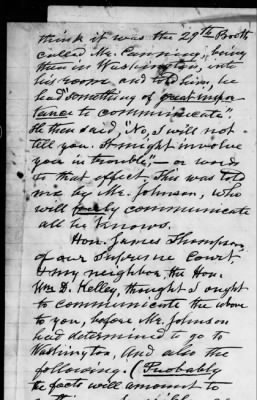 think it was the 29th Booth
called Mr. Canning, being
then in Washington, into
his room, and told him, he
had "something of great impor
tance to communicate"
He then said, "No, I will not
tell you. It might involve
you in trouble," — or words
to that effect. This was told
me by Mr. Johnson, who
will communicate
all he knows.
Hon. James Thompson
of our Supreme Court
& my neighbor, the Hon.
Wm D. Kelley, thought I ought
to communicate the above
to you, before Mr. Johnson
had determined to go to
Washington, And also the
following. (Probably
the facts will amount to